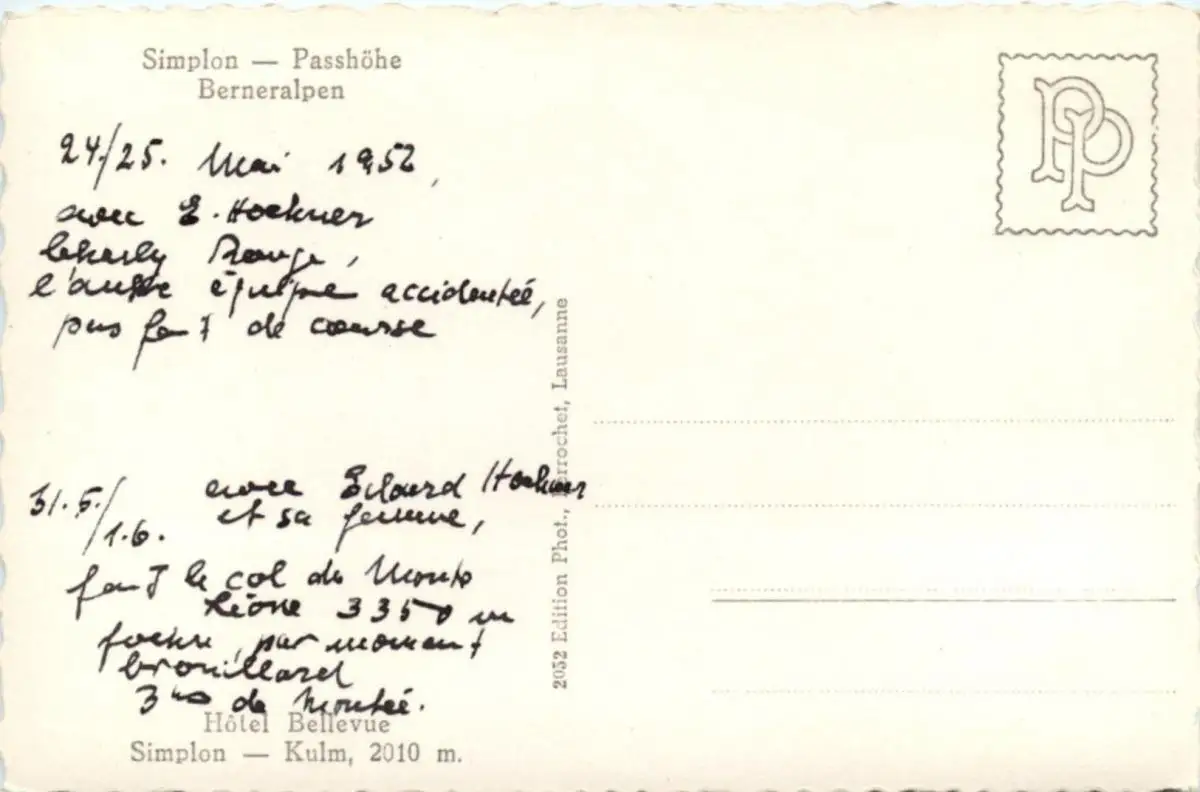 Simplon — Passhöhe
Berneralpen
24./25. Mai 1952,
avec E. Hockner
Rouge,
l'autre équipe accidentée,
pas fait de course
31.5./
1.6.
avec Edouard Hockner
et sa femme,
fait le col de Monte
Léone 3350 m
par moment
brouillard
3 hrs de Montée.
Hôtel Bellevue
Simplon — Kulm, 2010 m.
2052 Edition Phot., Perrochet, Lausanne
PP